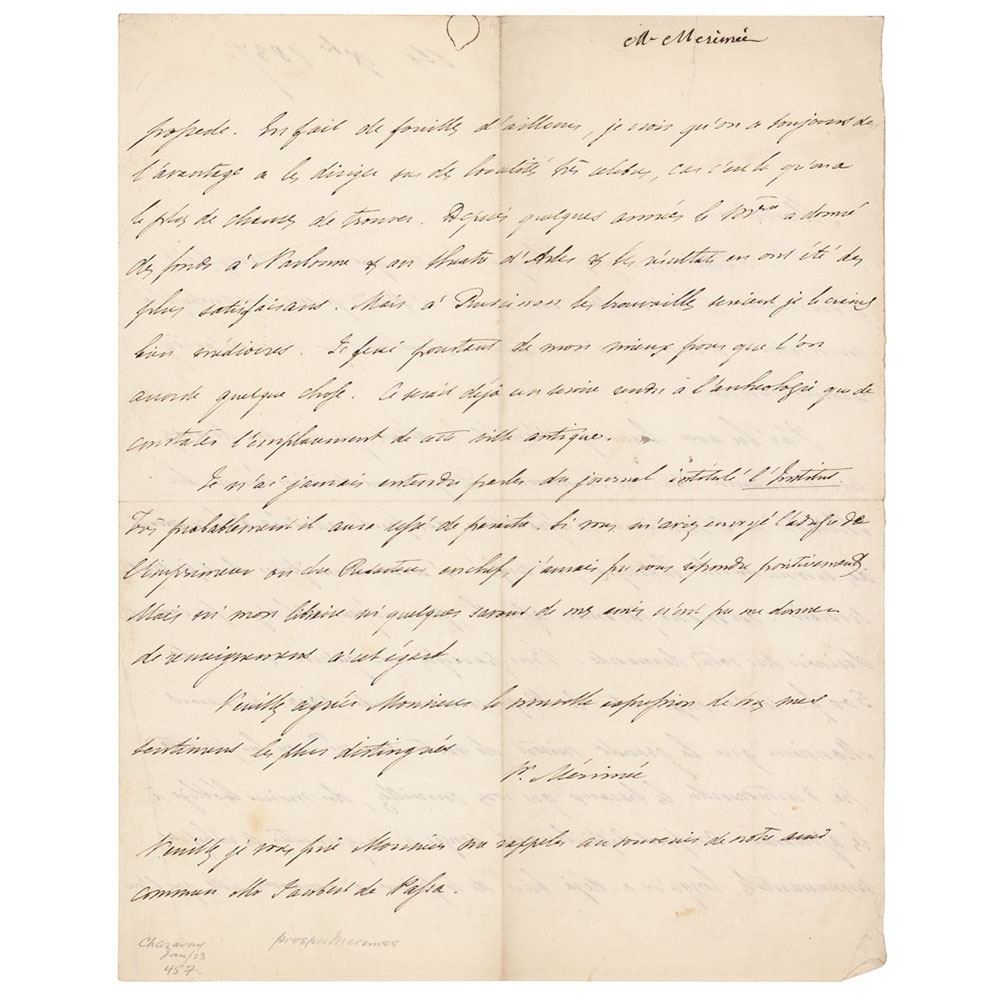 Mr Merimée
propede. En fait de fouilles d'ailleurs, je crois qu'on a toujours de
l'avantage a les diriger sur des localités très celebres, car c'est là qu'on a
le plus de chances de trouver. Depuis quelques années le Mère a donné
des fonds à Narbonne & au theatre d'Arles & les résultats en ont été des
plus satisfaisans. Mais à Ruscinon les trouvailles seraient je le crains
bien médiocres. Je ferai pourtant de mon mieux pour que l'on
accorde quelque chose. Ce serait déjà un service rendu à l'archeologie que de
constater l'emplacement de cette ville antique.
Je n'ai jamais entendu parler du journal intitulé l'Institut.
Très probablement il aura cessé de paraitre. Si vous m'aviez envoyé l'adresse de
l'imprimeur ou du Redacteur en chef, j'aurais pu vous répondre positivement.
Mais ni mon libraire ni quelques savans de mes amis n'ont pu me donner
de renseignemens à cet égard
Veuillez agréer Monsieur la nouvelle expression de tous mes
sentimens les plus distingués
Pr. Mérimée
Veuillez je vous prie Monsieur me rappeler au souvenir de notre ami
commun Mr Jaubert de Passa.
Charavay
Jan/23
457.
prosper Merimee